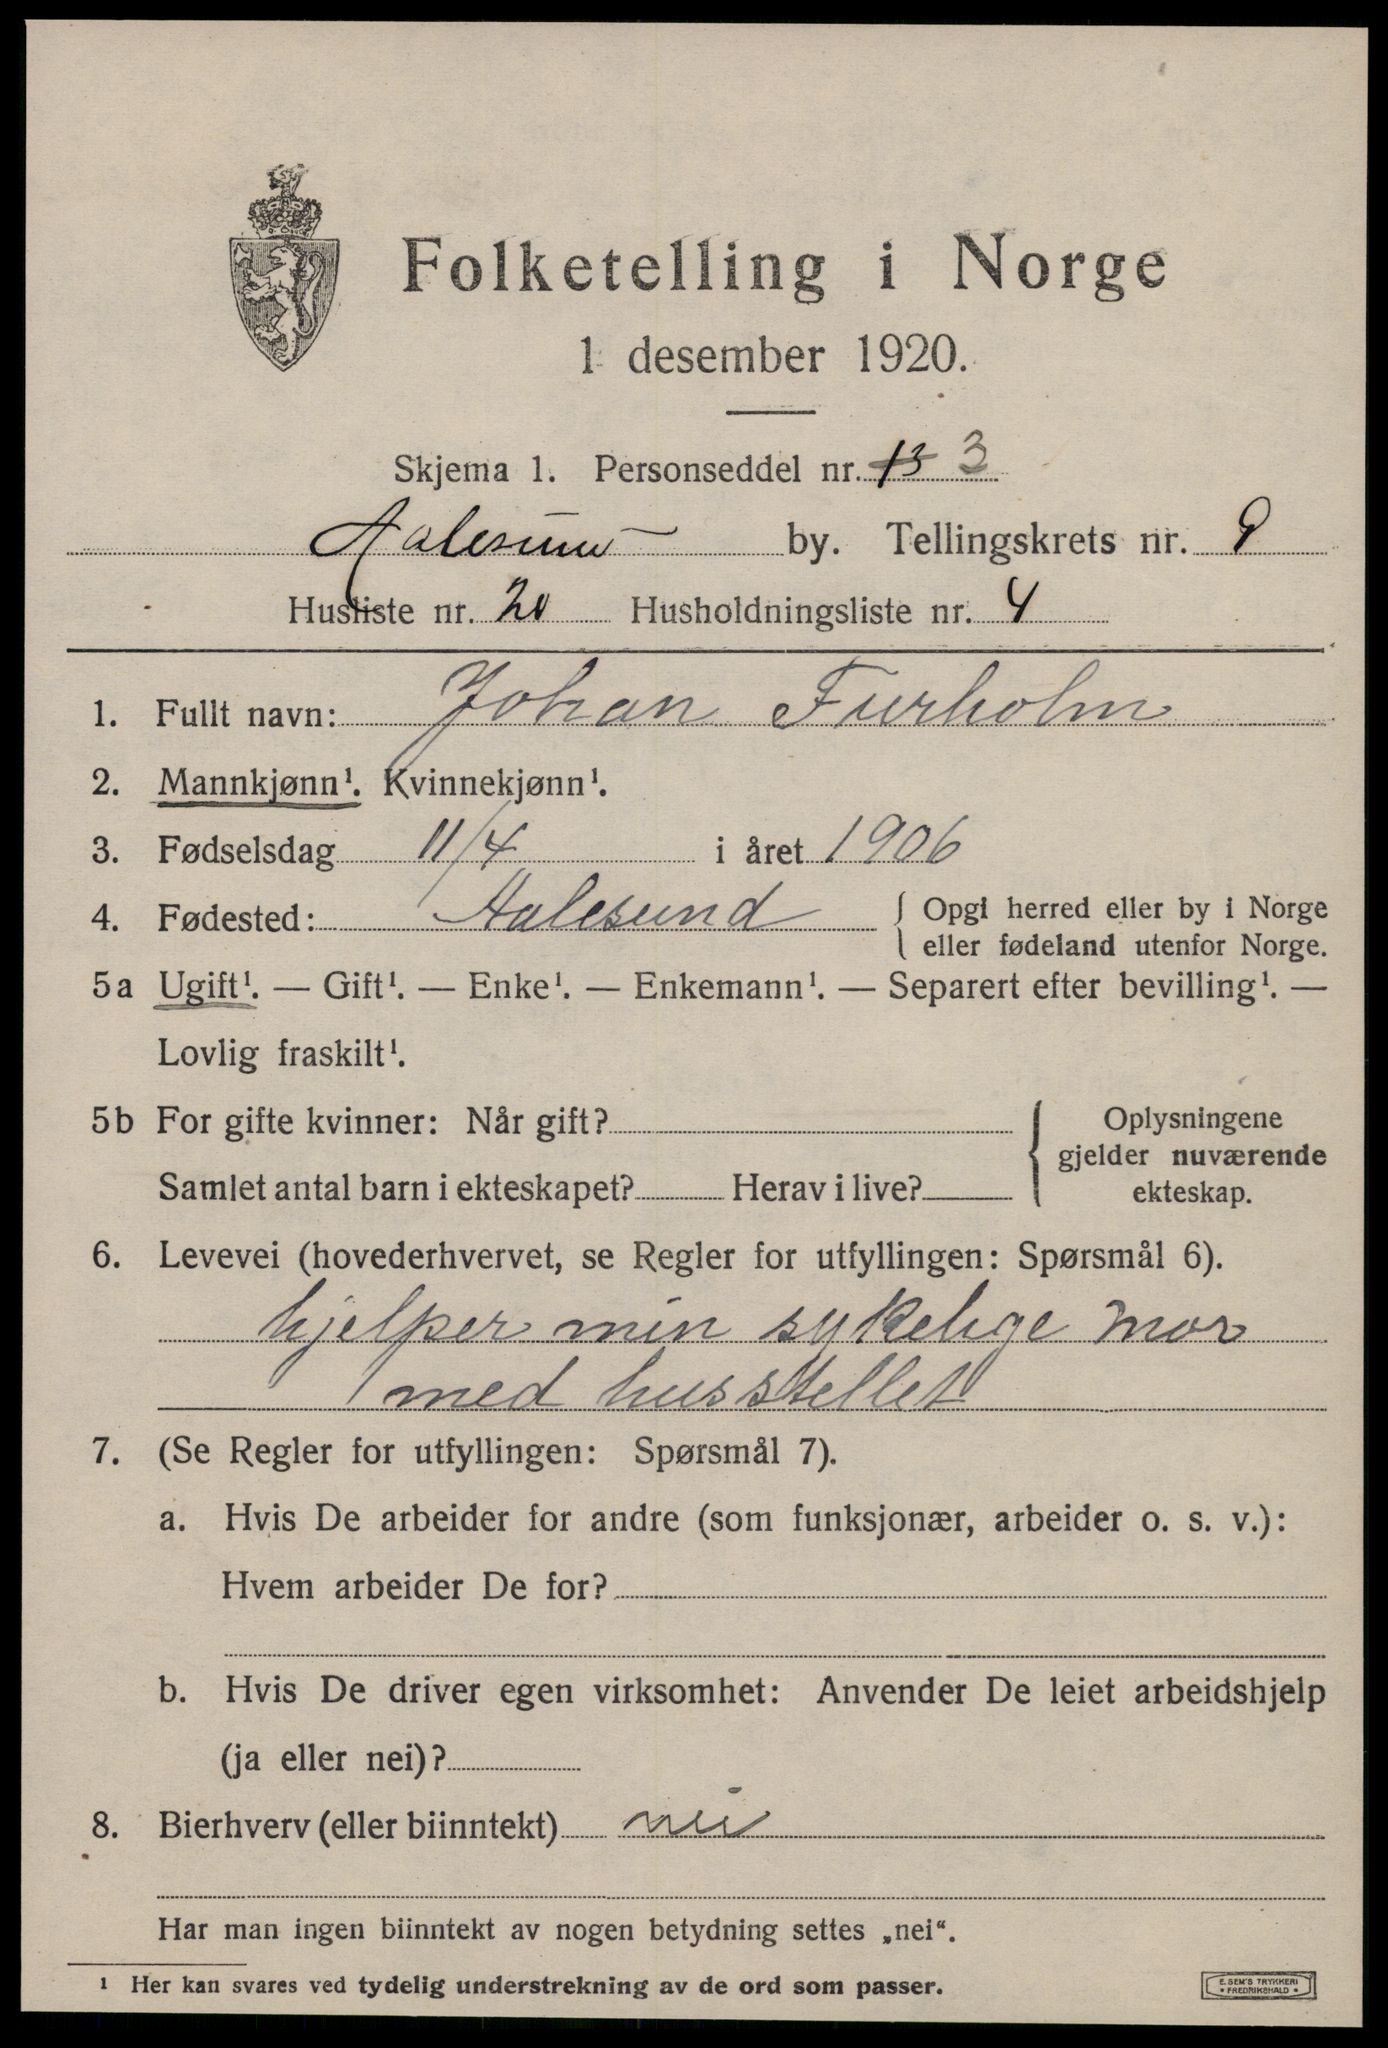 Folketelling i Norge
1 desember 1920.
Skjema 1. Personseddel nr. 13 3
Aalesund by. Tellingskrets nr. 9
Husliste nr. 20 Husholdningsliste nr. 4
1. Fullt navn: Johan Furholm
2. Mannkjønn¹. Kvinnekjønn¹.
3. Fødselsdag 11/4 i året 1906
4. Fødested: Aalesund { Opgi herred eller by i Norge
eller fødeland utenfor Norge.
5a Ugift¹. — Gift¹. — Enke¹. — Enkemann¹. — Separert efter bevilling¹. —
Lovlig fraskilt¹.
5b For gifte kvinner: Når gift?
Samlet antal barn i ekteskapet? Herav i live?
{ Oplysningene
gjelder nuværende
ekteskap.
6. Levevei (hovederhvervet, se Regler for utfyllingen: Spørsmål 6).
hjelper min sykelige mor
med husstellet
7. (Se Regler for utfyllingen: Spørsmål 7).
a. Hvis De arbeider for andre (som funksjonær, arbeider o. s. v.):
Hvem arbeider De for?
b. Hvis De driver egen virksomhet: Anvender De leiet arbeidshjelp
(ja eller nei)?
8. Bierhverv (eller biinntekt) nei
Har man ingen biinntekt av nogen betydning settes „nei“.
¹ Her kan svares ved tydelig understrekning av de ord som passer.
E. SEM'S TRYKKERI
• FREDRIKSHALD •